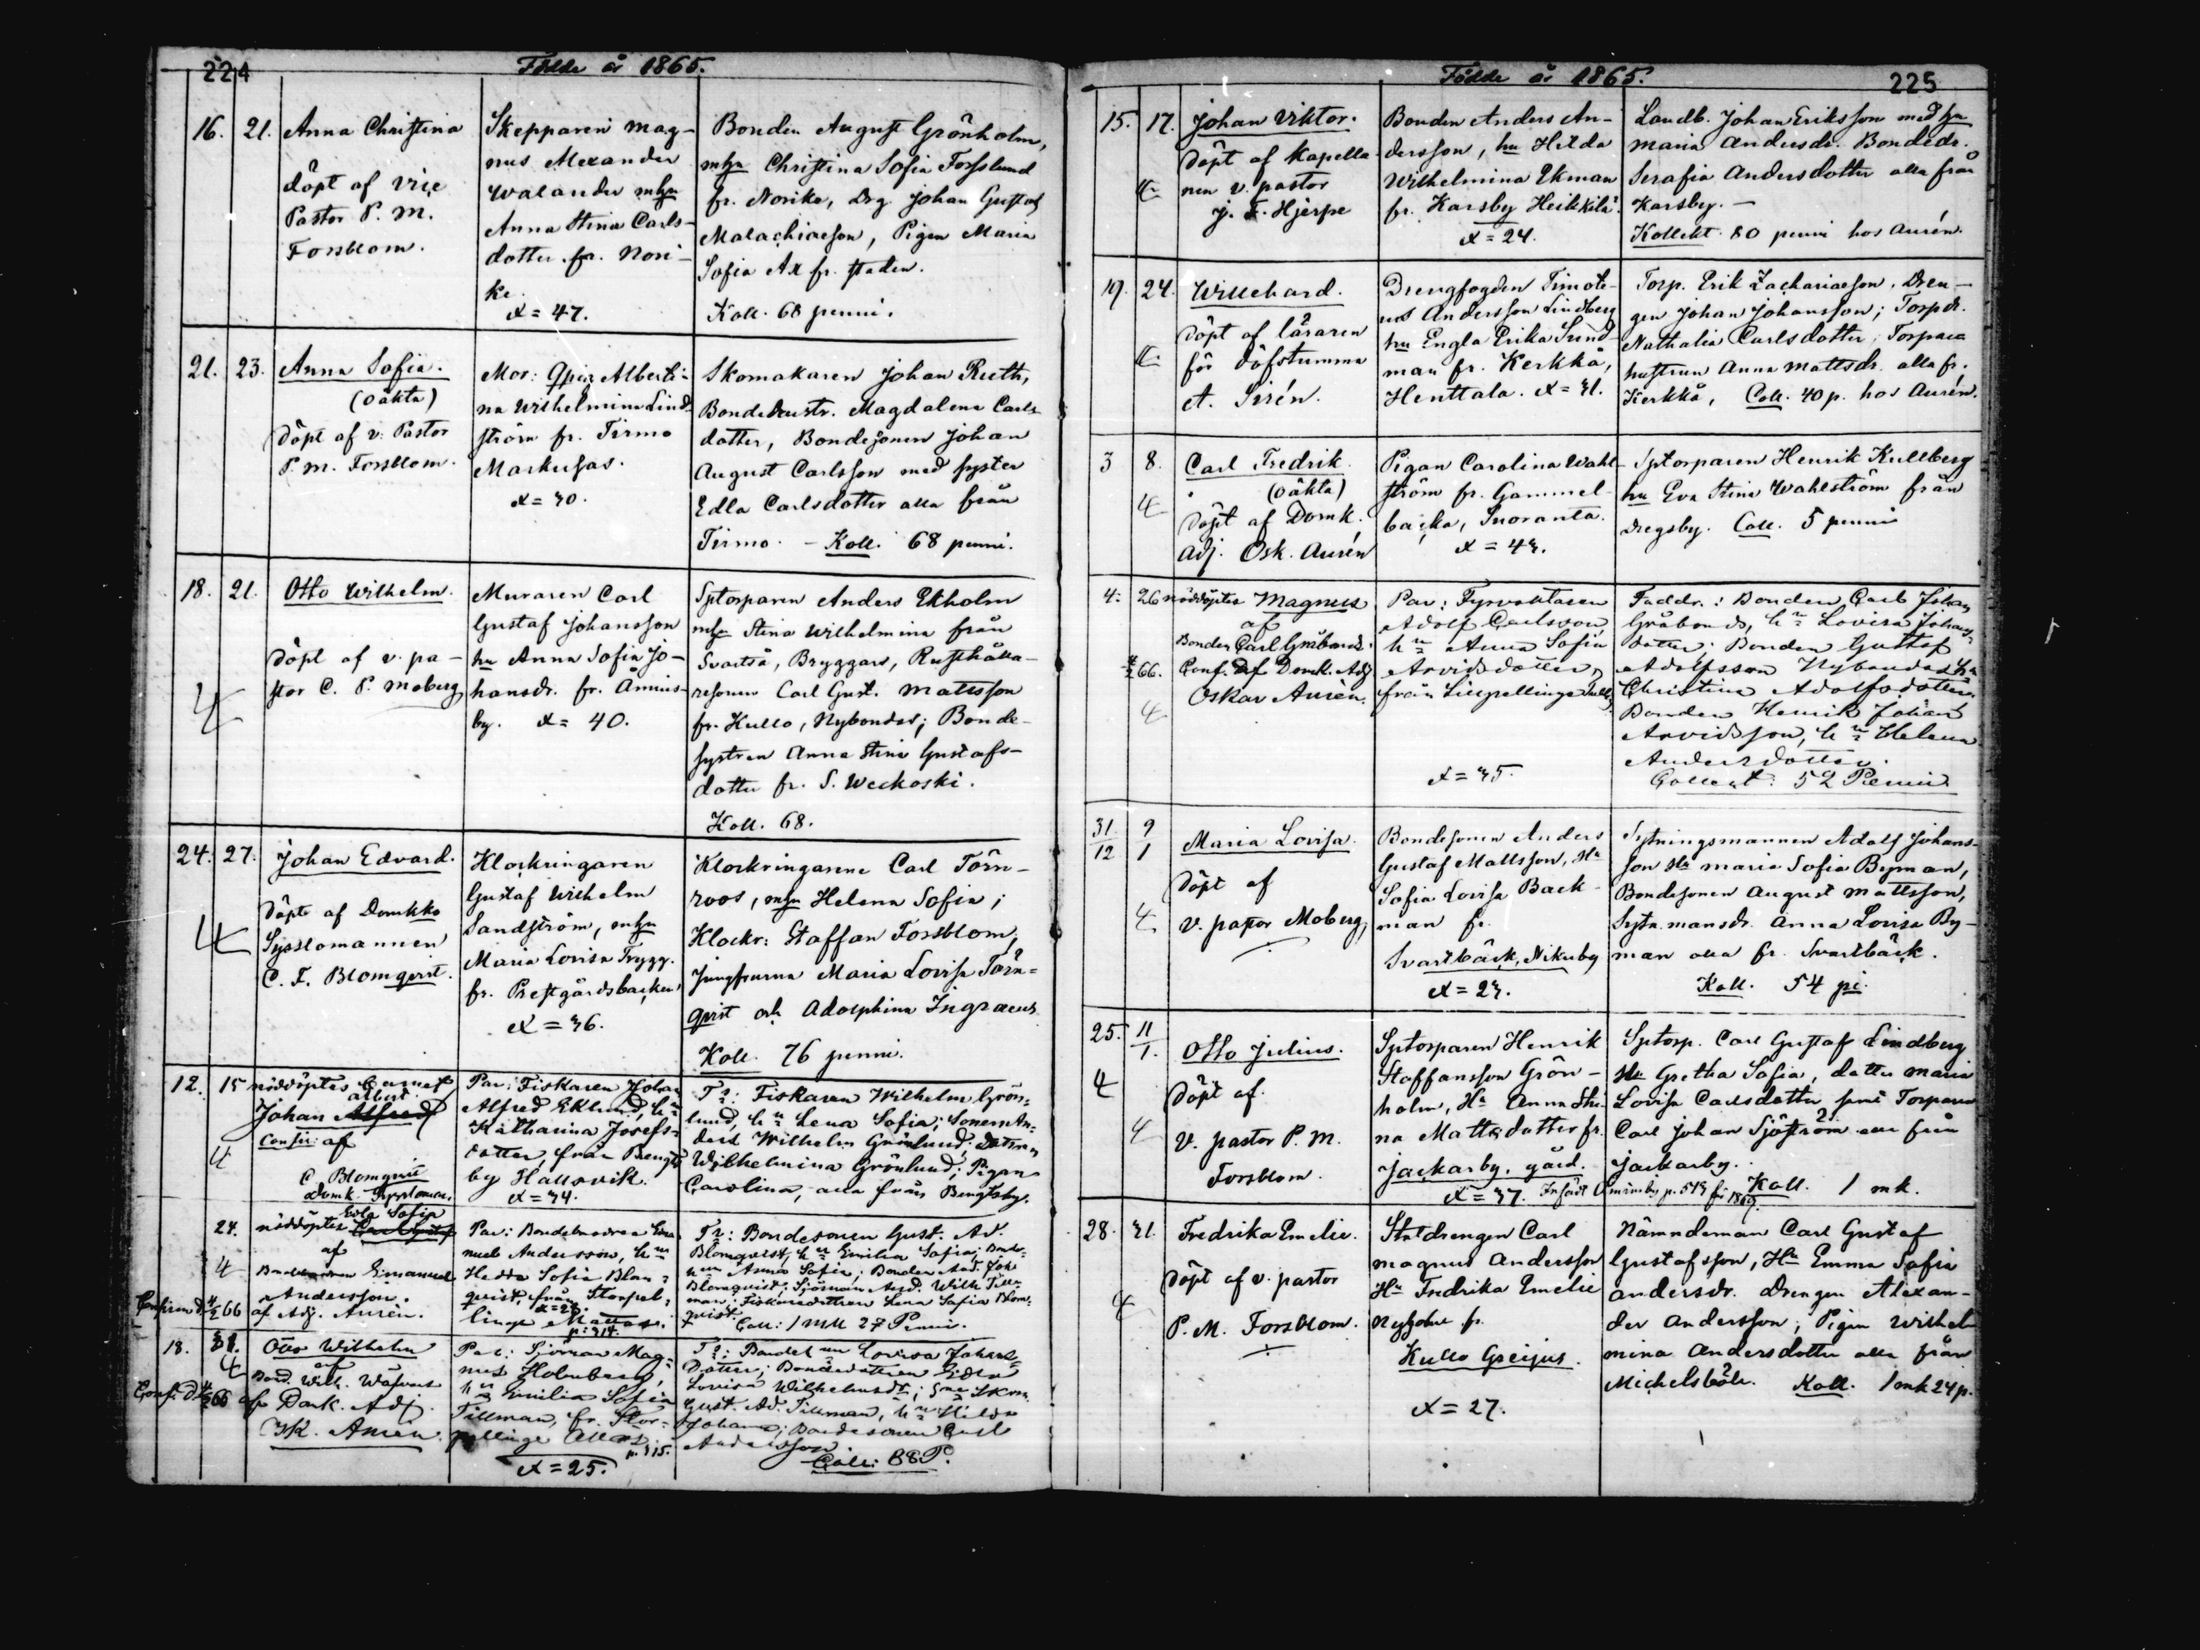 224
Födde år 1865.
16. 21. Anna Christina
döpt af vice
Pastor P. M.
Forsblom.
Skepparen Mag-
nus Alexander
Walander mhu
Anna Stina Carls-
dotter fr. Nori-
ke.
x = 47.
Bonden August Grönholm,
mhu Christina Sofia Forsslund
fr. Norike, Drg Johan Gustaf
Malachiaeson, Pigan Maria
Sofia Ax fr. staden.
Koll. 68 penni.
21. 23. Anna Sofia.
(oäkta)
döpt af v. Pastor
P. M. Forsblom.
Mor: Alberti-
na Wilhelmina Lind-
ström fr. Tirmo
Markusas.
x = 30.
Skomakaren Johan Ruth,
Magdalena Carls-
dotter, Bondesonen Johan
August Carlsson med syster
Edla Carlsdotter alla från
Tirmo. - Koll. 68 penni.
18. 21. Otto Wilhelm.
döpt af v. pa-
stor C. P. Moberg
Muraren Carl
Gustaf Johansson
hu Anna Sofia Jo-
hansdr. fr. Annis-
by. x = 40.
Sptorparen Anders Ekholm
mhu Stina Wilhelmina från
Svartså, Bryggars, Rusthålla-
resonen Carl Gust. Mattsson
fr. Kullo, Nybondas; Bonde-
systren Anna Stina Gustafs-
dotter fr. S. Weckoski.
Koll. 68.
24. 27. Johan Edvard.
döpt af Domkko
Sysslomannen
C. F. Blomqvist.
Klockringaren
Gustaf Wilhelm
Sandström, mhu
Maria Lovisa Trygg.
fr. Prestgårdsbacken
x = 36.
Klockringarene Carl Törn-
roos, mhu Helena Sofia;
Klockr: Staffan Forsblom,
Jungfrurna Maria Lovisa Törn-
qvist och Adolphina Ingraeus
Koll. 76 penni.
12. 15 nöddöptes barnet
Albert
Johan Alfred
Confir: af
C Blomqvist
Domk. Syssloman.
Par: Fiskaren Johan
Alfred Eklund, hu
Katharina Josefs-
dotter från Bengts
by Hallsvik.
x = 34.
Fr: Fiskaren Wilhelm Grön-
lund, hu Lena Sofia; Sonen An-
ders Wilhelm Grönlund; Dottren
Wilhelmina Grönlund; Pigan
Carolina, alla från Bengtsby.
24. nöddöptes Edla Sofia
af
Emanuel
Andersson.
Confirmd 4/2 66 af Adj. Aurén.
Par: Bondelandbon Ema-
nuel Andersson, hu
Hedda Sofia Blom-
quist, från Storpel-
x = 27.
linge Mattas.
p: 314.
Fr: Bondesonen Gust. Ad.
Blomqvist, hu Emilia Sofia;
Anna Sofia; Bonden And. Joh.
Blomquist; Sjöman And. Wilh. Till-
man; Fiskaredottren Lena Sofia Blom-
quist.
Coll: 1 Mk 27 Penni.
18. 31. Otto Wilhelm
af
Bond. Wilh.
Conf. d 4/2 66 af Domk. Adj.
Osk. Aurén.
Par: Sjöman Mag-
nus Holmberg,
hu Emilia Sofia
Tillman, fr. Stor-
pellinge Allas.
p. 315.
x = 25.
Fr: Lovisa Johans-
dotter; Bondedottren Edla
Lovisa Wilhelmsdr;
Gust. Ad. Tillman, hu Hilda
Johanna; Bondesonen Carl
Andersson.
Coll: 88 P.
Födde år 1865.
225
15. 17. Johan Viktor.
döpt af Kapella-
nen v. pastor
J. F. Hjerpe
Bonden Anders An-
dersson, hu Hilda
Wilhelmina Ekman
fr. Karsby Heikkilä.
x = 24.
Landb. Johan Eriksson med hu
Maria Andersdr. Bondedr.
Serafia Andersdotter alla från
Karsby. -
Kollekt. 80 penni hos Aurén.
19. 24. Willehard.
döpt af läraren
för döfstumma
A. Sirén.
Drengfogden Timote-
us Andersson Lindberg
hu Engla Erika Sund-
man fr. Kerkkå,
Henttala. x = 31.
Torp. Erik Zachariaeson, Dren-
gen Johan Johansson; Torpdr.
Nathalia Carlsdotter; Torpare
hustrun Anna Mattsdr. alla fr.
Kerkkå, Coll. 40 p. hos Aurén.
3 8. Carl Fredrik.
(oäkta)
döpt af Domk.
Adj. Osk. Aurén
Pigan Carolina Wahl-
ström fr. Gammel-
backa, Suoranta.
x = 43.
Sptorparen Henrik Kullberg
hu Eva Stina Wahlström från
Dregsby. Coll. 5 penni
4. 26 nöddöptes Magnus
af
Bonden Carl Gråbonds.
4/2 66. Conf. af Domk. Adj
Oskar Aurén.
Par: Fyrvaktaren
Adolf Carlsson
hu Anna Sofia
Arvidsdotter,
från Lillpellinge
x = 35.
Faddr.: Bonden Carl Johan
Gråbonds, hu Lovisa Johans-
dotter; Bonden Gustaf
Adolfsson Nybondas hu
Christina Adolfsdotter
Bonden Henrik Johan
Arvidsson, hu Helena
Andersdotter.
Collect: 52 Penni
31/12 9/1 Maria Lovisa.
döpt af
v. pastor Moberg,
Bondesonen Anders
Gustaf Mattsson, Hu
Sofia Lovisa Back-
man fr.
Svartbäck, Nikuby
x = 23.
Sytningsmannen Adolf Johans-
son Hu Maria Sofia Byman,
Bondesonen August Mattsson,
Sytn.mansdr. Anna Lovisa By-
man alla fr. Svartbäck.
Koll. 54 pi.
25. 11/1. Otto Julius.
döpt af
v. pastor P. M.
Forsblom.
Sptorparen Henrik
Staffansson Grön-
holm, Hu Anna Sti-
na Mattsdotter fr.
Jackarby, gård.
x = 37.
Sptorp. Carl Gustaf Lindberg
Hu Gretha Sofia, dotter Maria
Lovisa Carlsdotter samt Torparen
Carl Johan Sjöström alla från
Jackarby.
Koll. 1 mk.
28. 31. Fredrika Emelie.
döpt af v. pastor
P. M. Forsblom.
Statdrengen Carl
Magnus Andersson
Hu Fredrika Emelie
fr.
Kullo Greijus.
x = 27.
Nämndeman Carl Gustaf
Gustafsson, Hu Emma Sofia
Andersdr. Drengen Alexan-
der Andersson, Pigan Wilhel-
mina Andersdotter alla från
Michelsböle. Koll. 1 mk 24 p.